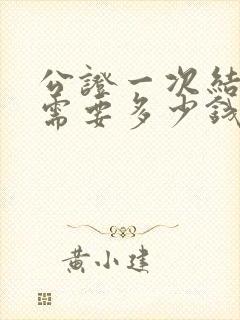 公證一次結
需要多少錢
黃小建